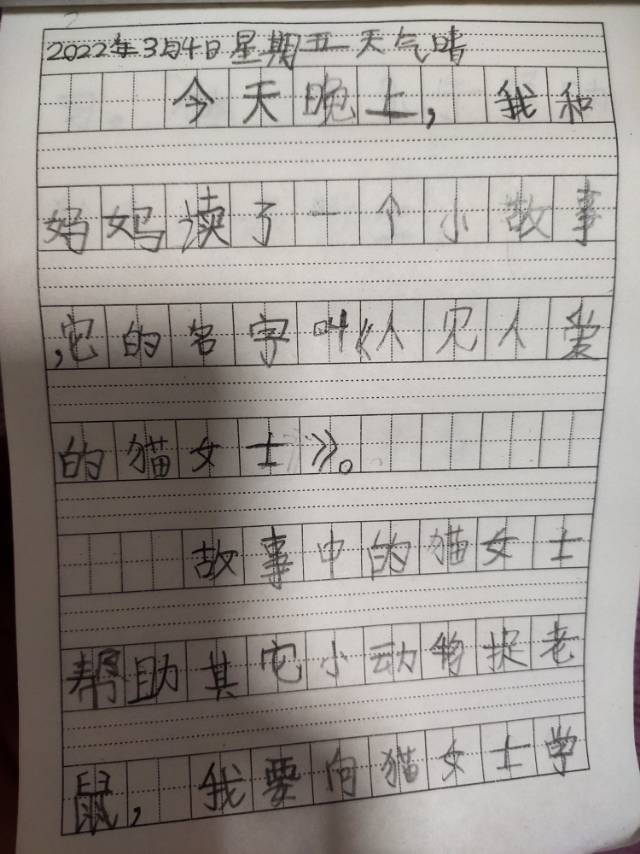 2022年3月4日星期五天气晴
今天晚上,我和
妈妈读了一个小故事
,它的名字叫《人见人爱
的猫女士》。
故事中的猫女士
帮助其它小动物捉老
鼠,我要向猫女士学